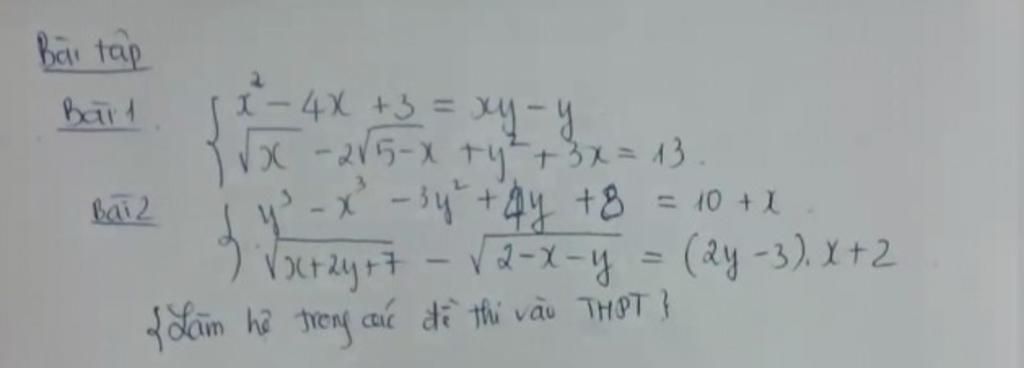 Bài tập
Bài 1. { x² - 4x + 3 = xy - y
√x - 2√(5-x) + y² + 3x = 13.
Bài 2 { y³ - x³ - 3y² + 4y + 8 = 10 + x.
√(x+2y+7) - √(2-x-y) = (2y-3).x+2
{Làm hệ trong các đề thi vào THPT}